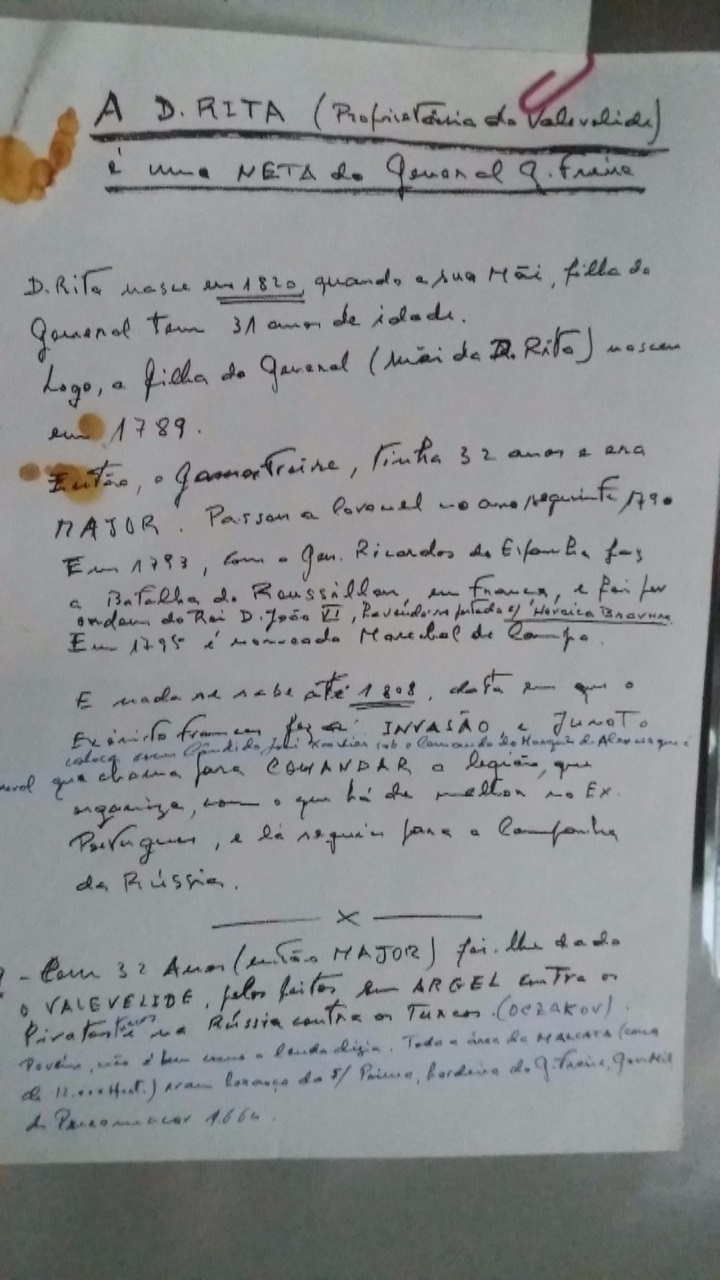 A D. RITA (Proprietária do Valevelide)
é uma NETA do General G. Freire
D. Rita nasce em 1820, quando a sua Mãi, filha do
General tem 31 anos de idade.
Logo, a filha do General (Mãi da D. Rita) nasceu
em 1789.
Então, o Gomes Freire, tinha 32 anos e era
MAJOR. Passou a Coronel no ano seguinte 1790
Em 1793, com o Gen. Ricardos de Espanha faz
a Batalha do Roussillon, em França, e foi por
ordem do Rei D. João VI, s/ Heroica Bravura
Em 1795 é nomeado Marechal de Campo.
E nada se sabe até 1808, data em que o
Exército frances fez a INVASÃO e Junoto
coloca Cândido José Xavier sob o Comando do Marquês de Alorna que é
que chama para COMANDAR a legião, que
organiza, com o que há de melhor no Ex.
Portugues, e lá seguiu para a Campanha
da Rússia.
X
- Com 32 Anos (então MAJOR) foi-lhe dado
o VALEVELIDE, pelos feitos em ARGEL contra os
Piratas e na Rússia contra os Turcos. (OCZAKOV).
não é bem como a lenda dizia. Toda a área da MALCATA (cerca
de 12.000 Hect.) eram herança da s/ Prima, herdeira do G. Freire,
de Penamacor 1664.